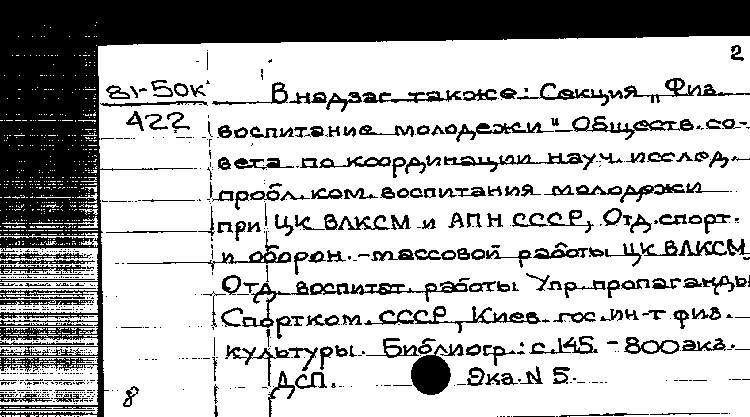 2
81-50к
422
В надзаг. также: Секция „Физ.
воспитание молодежи" Обществ. со-
вета по координации науч. исслед.
пробл. ком. воспитания молодежи
при ЦК ВЛКСМ и АПН СССР, Отд. спорт.
и оборон.-массовой работы ЦК ВЛКСМ,
Отд. воспитат. работы Упр. пропаганды
Спортком. СССР, Киев. гос. ин-т физ.
культуры. Библиогр.: с. 145. - 800 экз.
ДСП. Экз. N 5.
8